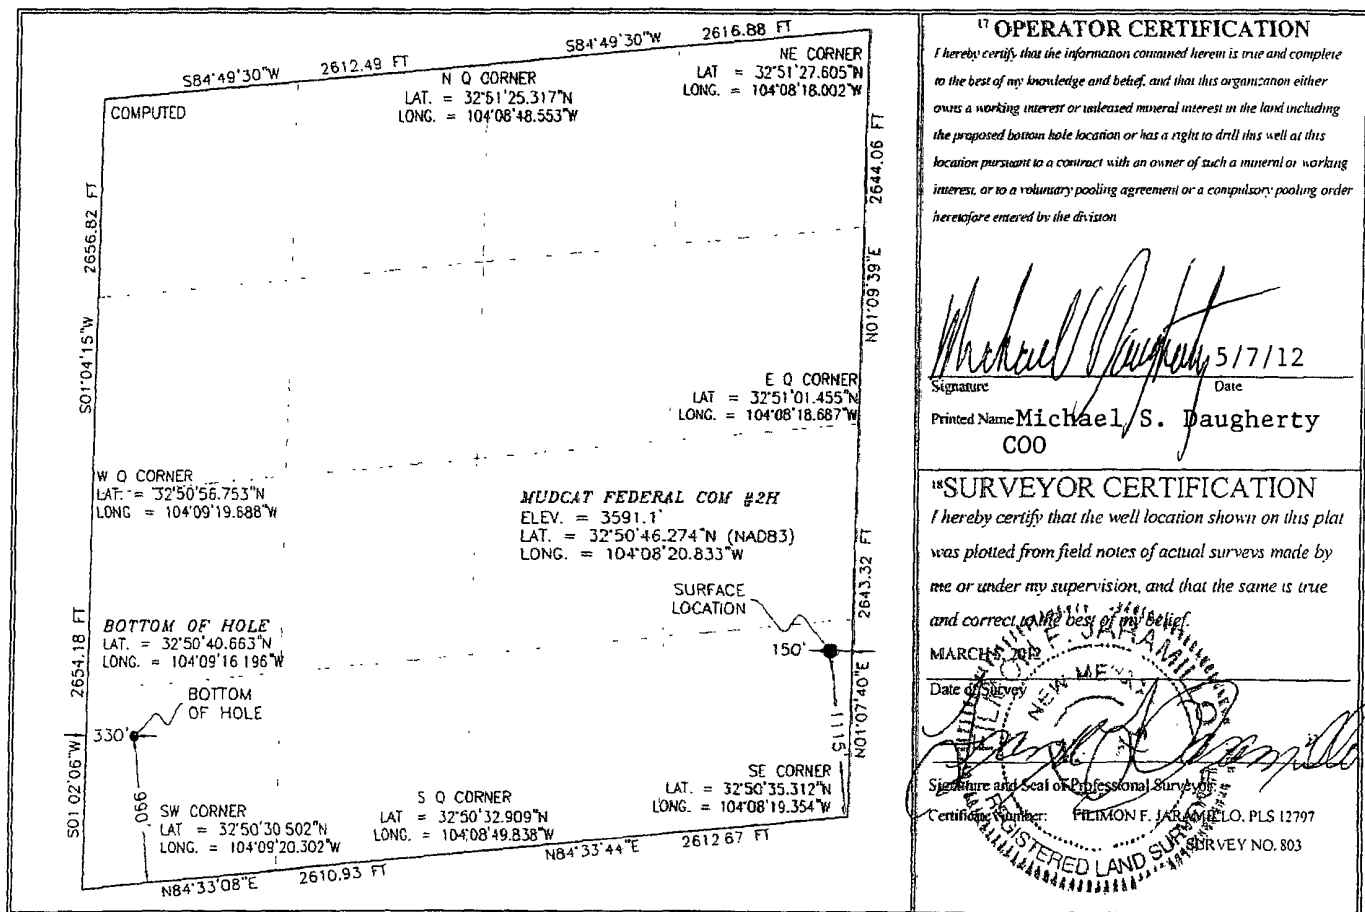 S84°49'30"W 2612.49 FT
S84°49'30"W 2616.88 FT
COMPUTED
N Q CORNER
LAT. = 32°51'25.317"N
LONG. = 104°08'48.553"W
NE CORNER
LAT = 32°51'27.605"N
LONG. = 104°08'18.002"W
2656.82 FT
S01°04'15"W
2644.06 FT
N01°09'39"E
E Q CORNER
LAT = 32°51'01.455"N
LONG. = 104°08'18.687"W
W Q CORNER
LAT. = 32°50'56.753"N
LONG = 104°09'19.688"W
MUDCAT FEDERAL COM #2H
ELEV. = 3591.1'
LAT. = 32°50'46.274"N (NAD83)
LONG. = 104°08'20.833"W
SURFACE
LOCATION
150'
2643.32 FT
N01°07'40"E
1115'
BOTTOM OF HOLE
LAT. = 32°50'40.663"N
LONG. = 104°09'16 196"W
BOTTOM
OF HOLE
330'
990'
2654.18 FT
S01 02'06"W
SW CORNER
LAT = 32°50'30 502"N
LONG. = 104°09'20.302"W
S Q CORNER
LAT. = 32°50'32.909"N
LONG. = 104°08'49.838"W
SE CORNER
LAT. = 32°50'35.312"N
LONG. = 104°08'19.354"W
N84°33'08"E 2610.93 FT
N84°33'44"E 2612 67 FT
17 OPERATOR CERTIFICATION
I hereby certify that the information contained herein is true and complete
to the best of my knowledge and belief, and that this organization either
owns a working interest or unleased mineral interest in the land including
the proposed bottom hole location or has a right to drill this well at this
location pursuant to a contract with an owner of such a mineral or working
interest, or to a voluntary pooling agreement or a compulsory pooling order
heretofore entered by the division
Michael Daugherty 5/7/12
Signature Date
Printed Name Michael S. Daugherty
COO
18 SURVEYOR CERTIFICATION
I hereby certify that the well location shown on this plat
was plotted from field notes of actual surveys made by
me or under my supervision, and that the same is true
and correct to the best of my belief.
MARCH 5, 2012
Date of Survey
FILIMON F. JARAMILLO
NEW MEXICO
REGISTERED LAND SURVEYOR
Signature and Seal of Professional Surveyor:
Certificate Number: FILIMON F. JARAMILLO, PLS 12797
SURVEY NO. 803